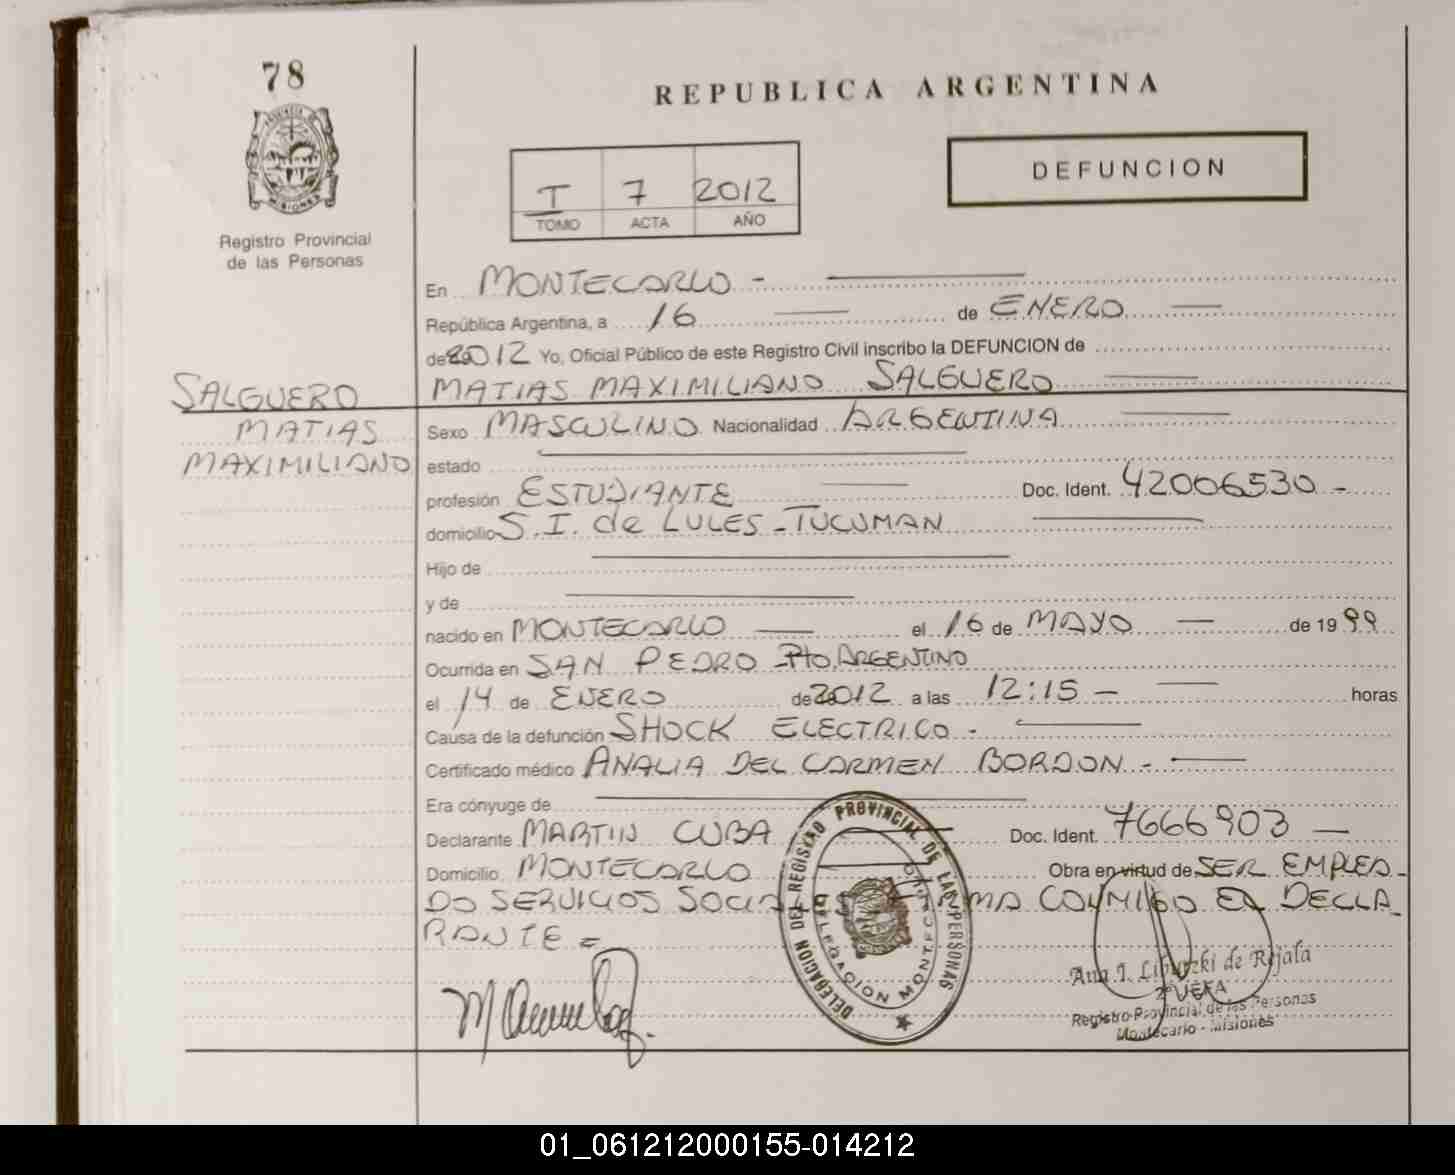 78
REPUBLICA ARGENTINA
PROVINCIA DE
MISIONES
Registro Provincial
de las Personas
T 7 2012
TOMO ACTA AÑO
DEFUNCION
En MONTECARLO -
República Argentina, a 16 de ENERO
de 2012 Yo, Oficial Público de este Registro Civil inscribo la DEFUNCION de
MATIAS MAXIMILIANO SALGUERO
SALGUERO
MATIAS
MAXIMILIANO
Sexo MASCULINO Nacionalidad ARGENTINA
estado
profesión ESTUDIANTE Doc. Ident. 42006530 -
domicilio S.I. de LULES - TUCUMAN
Hijo de
y de
nacido en MONTECARLO el 16 de MAYO de 1999
Ocurrida en SAN PEDRO - Pto. ARGENTINO
el 14 de ENERO de 2012 a las 12:15 - horas
Causa de la defunción SHOCK ELECTRICO -
Certificado médico ANALIA DEL CARMEN BORDON -
Era cónyuge de
Declarante MARTIN CUBA Doc. Ident. 7666903 -
Domicilio MONTECARLO Obra en virtud de SER EMPLEA-
DO SERVICIOS SOCIALES FIRMA CONMIGO EL DECLA-
RANTE =
DELEGACION DEL REGISTRO PROVINCIAL DE LAS PERSONAS
DELEGACION MONTECARLO
Ana I. de Rejala
Registro Provincial de las Personas
Montecarlo - Misiones
01_061212000155-014212